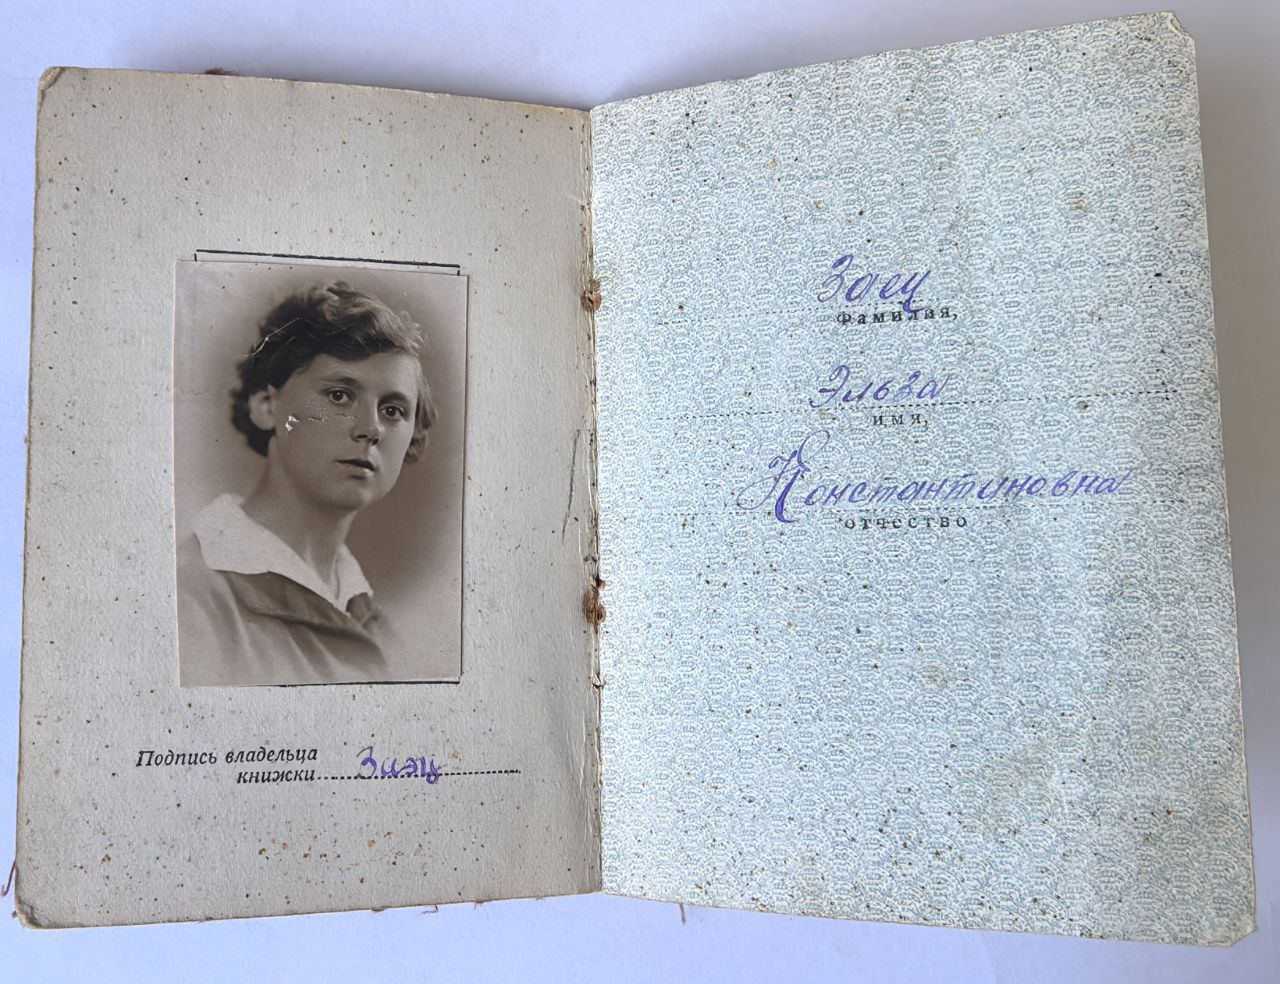 Подпись владельца
книжки Заяц
Заец
Фамилия,
Эльза
имя,
Константиновна
отчество